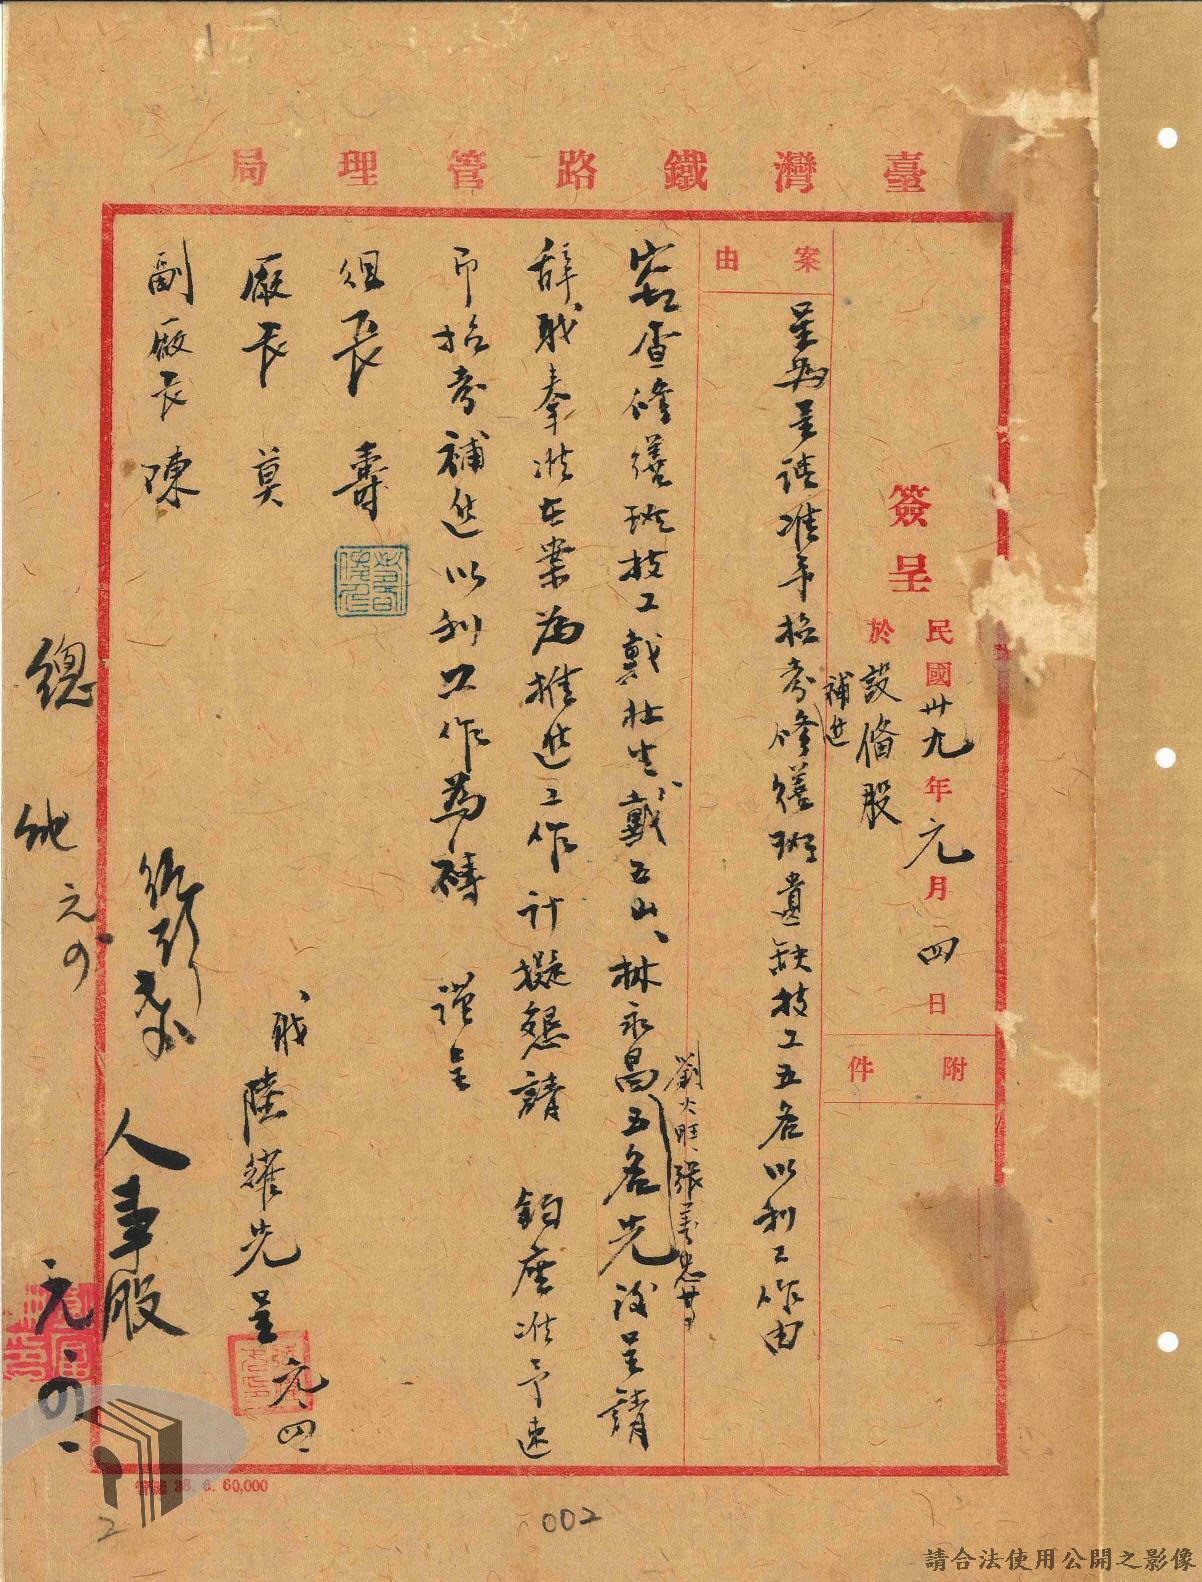 臺灣鐵路管理局
簽呈
民國卅九年元月四日
於設備股
附件
案由
呈為呈請准予招考補進修繕班遺缺技工五名以利工作由
竊查修繕班技工戴壯生、戴五山、林永昌、劉火旺、張善忠等五名先後呈請
辭職奉准在案為推進工作計擬懇請　鈞座准予速
即招考補進以利工作為禱　謹呈
組長　壽
廠長　莫
副廠長　陳
職陸繼光呈
元、四
人事股
元、四、
總
元、四
38. 6. 60,000
2
002
請合法使用公開之影像